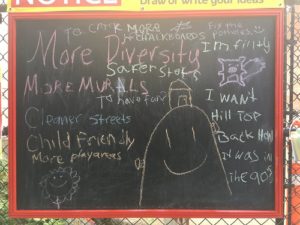 NOTICE
Draw or write your ideas
TO CATCH MORE
CHALKBOARDS
Fix the potholes.
More Diversity
I'm filthy
Safer
More Murals
To have fun
I WANT
Hill Top
Cleaner Streets
Back How
Child Friendly
it was in
More playareas
The 90s